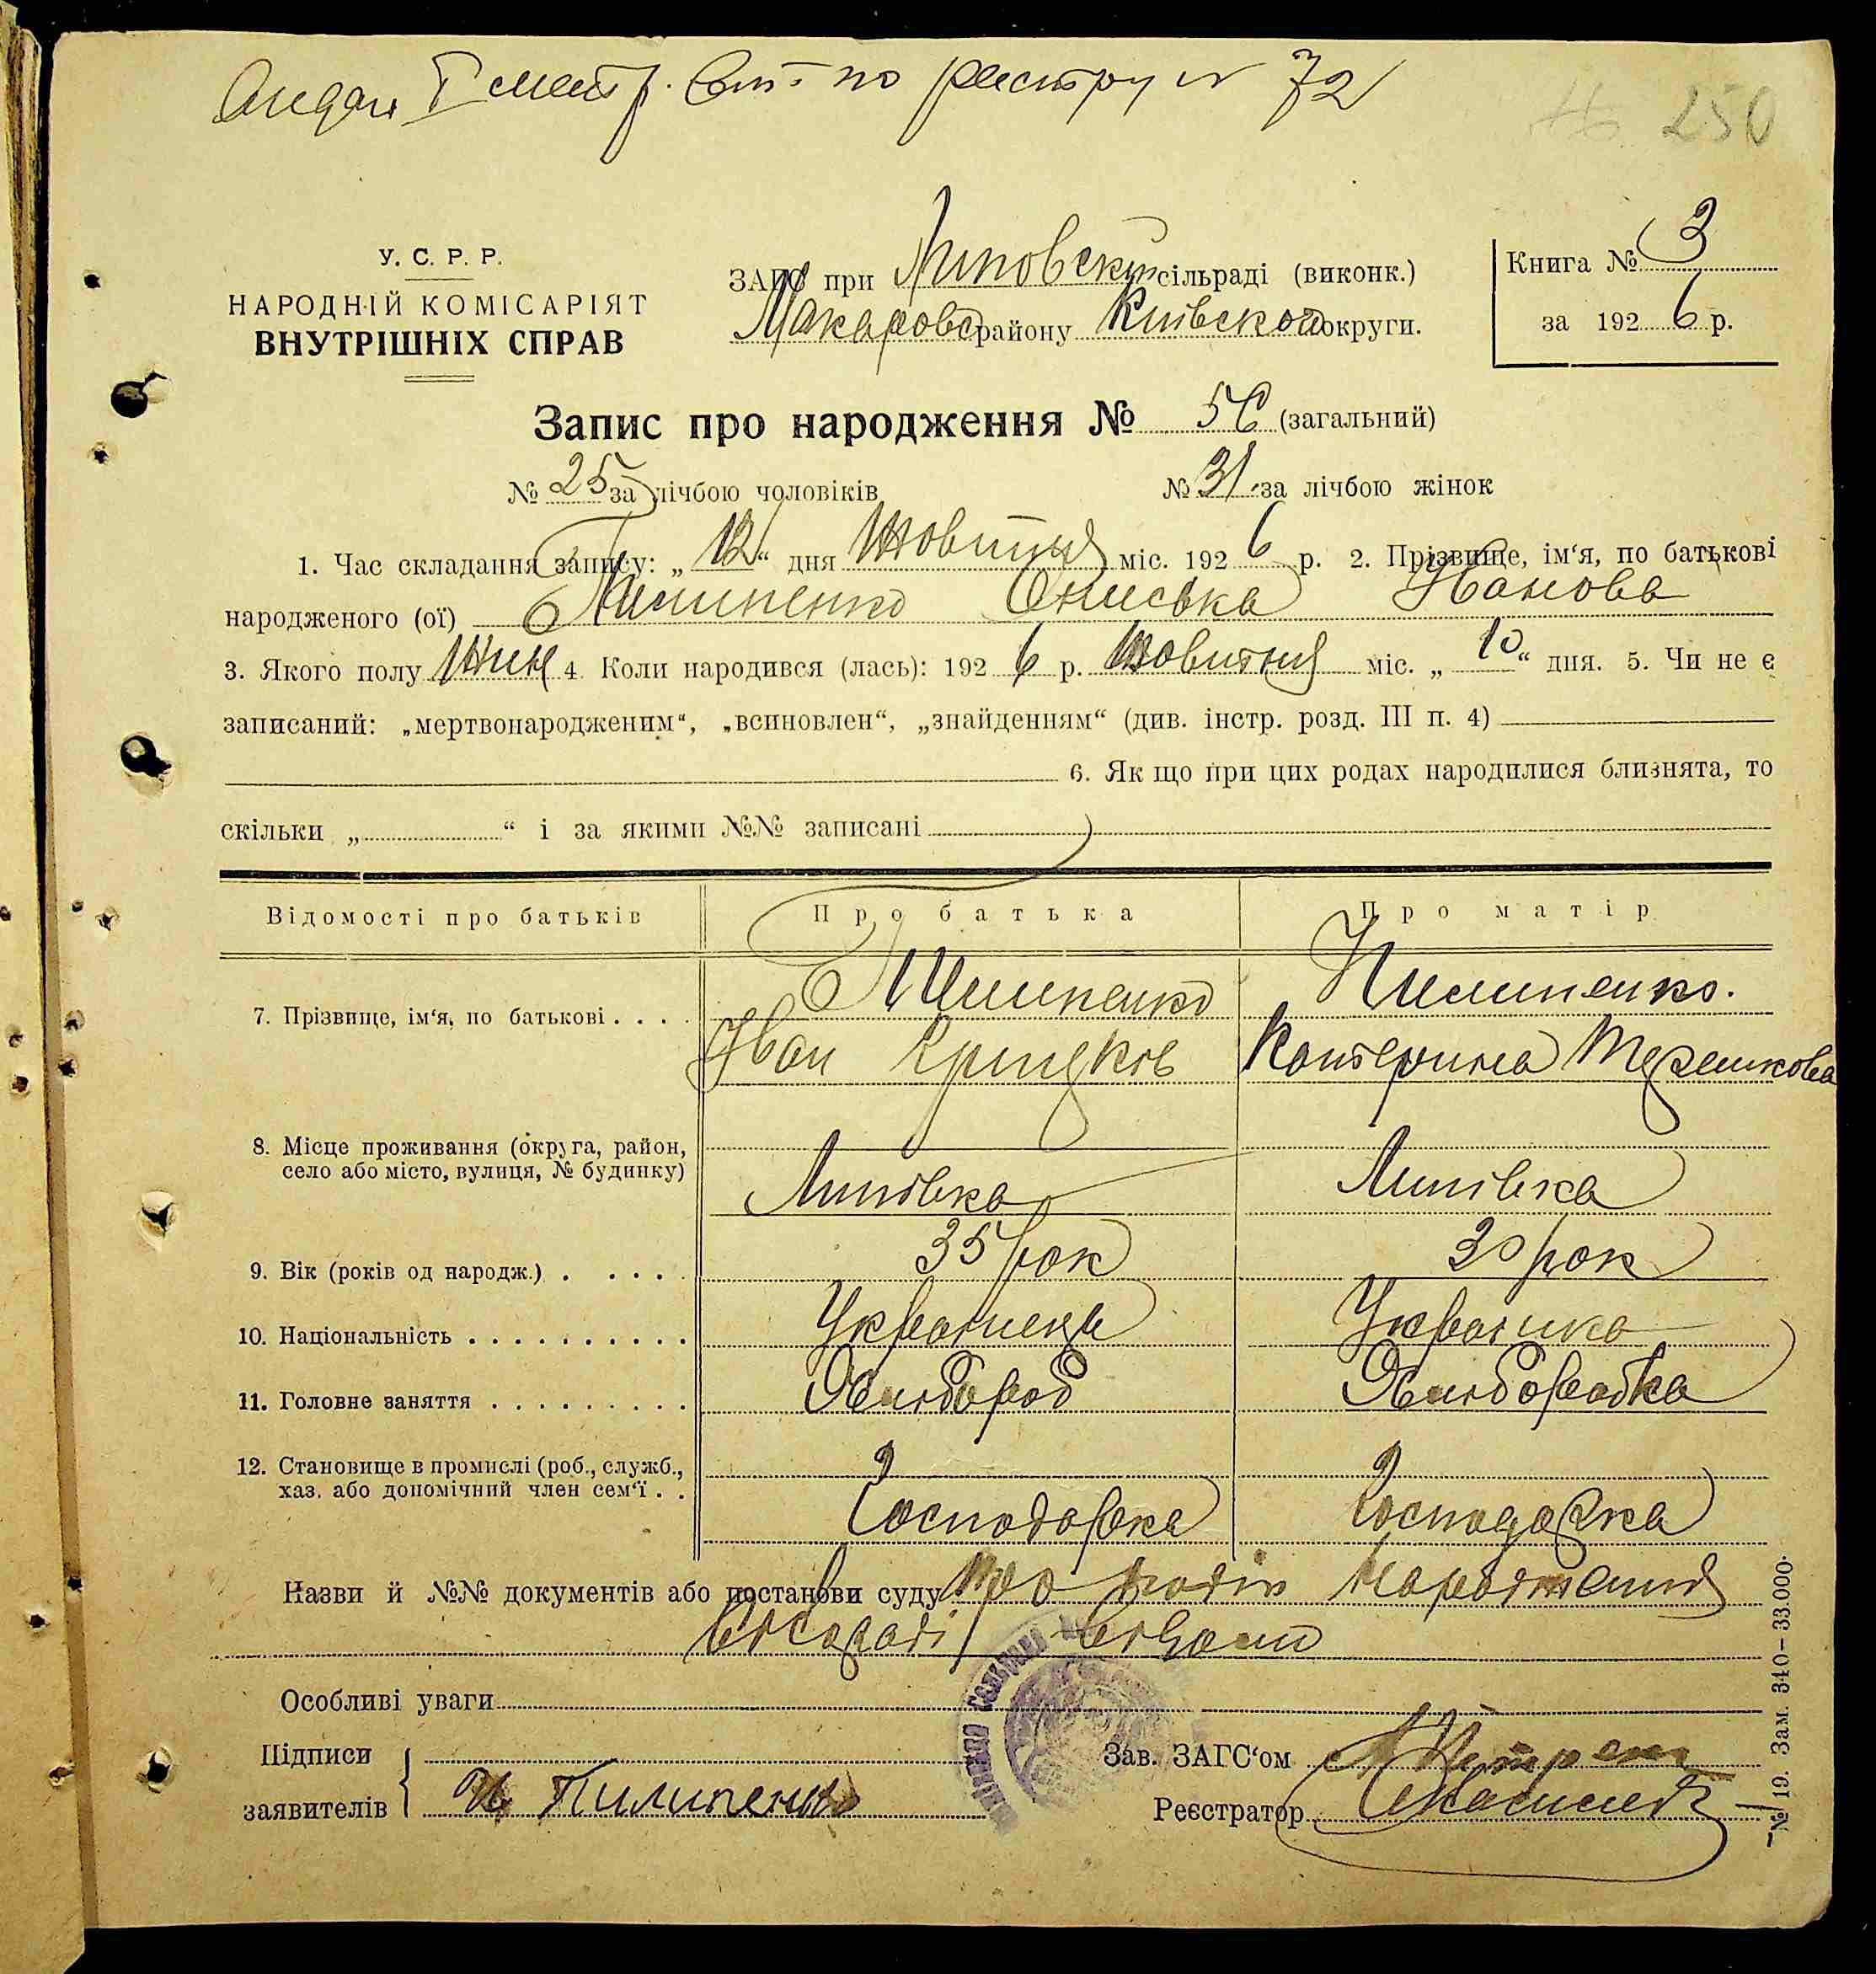 по реєстру № 72
250
У. С. Р. Р.
НАРОДНІЙ КОМІСАРІЯТ
ВНУТРІШНІХ СПРАВ
ЗАГС при Липовскій сільраді (виконк.)
Макаровс району Київскої округи.
Книга № 3
за 1926 р.
Запис про народження № 56 (загальний)
№ 25 за лічбою чоловіків № 31 за лічбою жінок
1. Час складання запису: „12“ дня Жовтня міс. 1926 р. 2. Прізвище, ім‘я, по батькові
народженого (ої) Пилипенко Ониська Іванова
3. Якого полу Жин 4. Коли народився (лась): 1926 р. Жовтня міс. „10“ дня. 5. Чи не є
записаний: „мертвонародженим“, „всиновлен“, „знайденням“ (див. інстр. розд. III п. 4)
6. Як що при цих родах народилися близнята, то
скільки „ “ і за якими №№ записані
Відомості про батьків Про батька Про матір
7. Прізвище, ім‘я, по батькові . . . . Пилипенко Пилипенко.
Іван Грицків Катерина Терешкова
8. Місце проживання (округа, район,
село або місто, вулиця, № будинку)
Липівка Липівка
9. Вік (років од народж.) . . . . . 35 рок 30 рок
10. Національність . . . . . . . . . . Украінець Украінка
11. Головне заняття . . . . . . . . . Хлибороб Хлиборобка
12. Становище в промислі (роб., служб.,
хаз. або допомічний член сем‘ї . .
Господарка Господарка
Назви й №№ документів або постанови суду про
Особливі уваги
Підписи
заявителів
И Пилипенко
Зав. ЗАГС‘ом
Реєстратор
№ 19. Зам. 340—33.000.